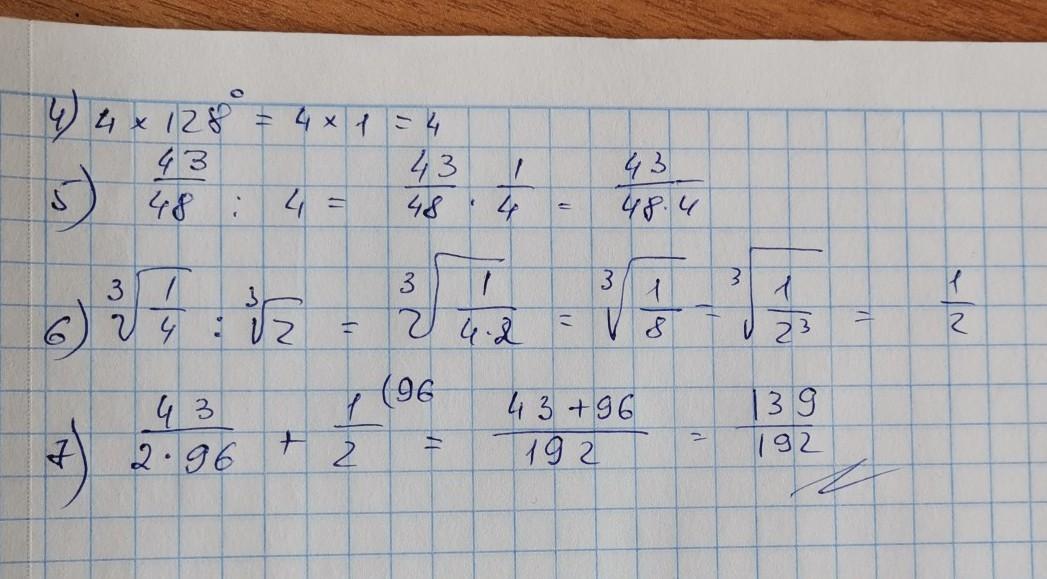 4) 4 × 128° = 4 × 1 = 4
5) 43/48 : 4 = 43/48 · 1/4 = 43/48·4
6) ∛(1/4) : ∛2 = ∛(1/4·2) = ∛(1/8) = ∛(1/2³) = 1/2
7) 43/2·96 + 1/2 (96 = 43+96/192 = 139/192